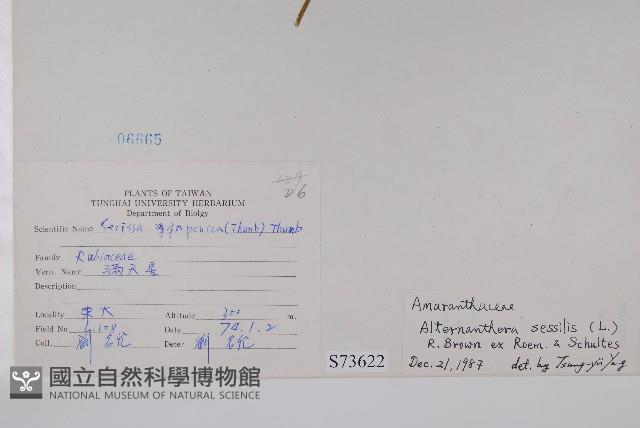 06665
D6
PLANTS OF TAIWAN
TUNGHAI UNIVERSITY HERBARIUM
Department of Biolgy
Scientific Name Serissa japonica (Thunb) Thunb
Family Rubiaceae
Vern. Name 滿天星
Description
Locality 東大 Altitude 300 m.
Field No L108 Date 74.1.2
Coll. 劉 Deter. 劉
S73622
Amaranthaceae
Alternanthera sessilis (L.)
R. Brown ex Roem. & Schultes
Dec. 21, 1987 det. by Tsung-yü
國立自然科學博物館
NATIONAL MUSEUM OF NATURAL SCIENCE